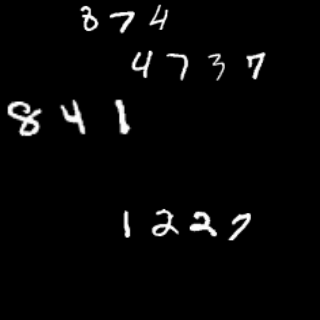 874
4737
841
1227